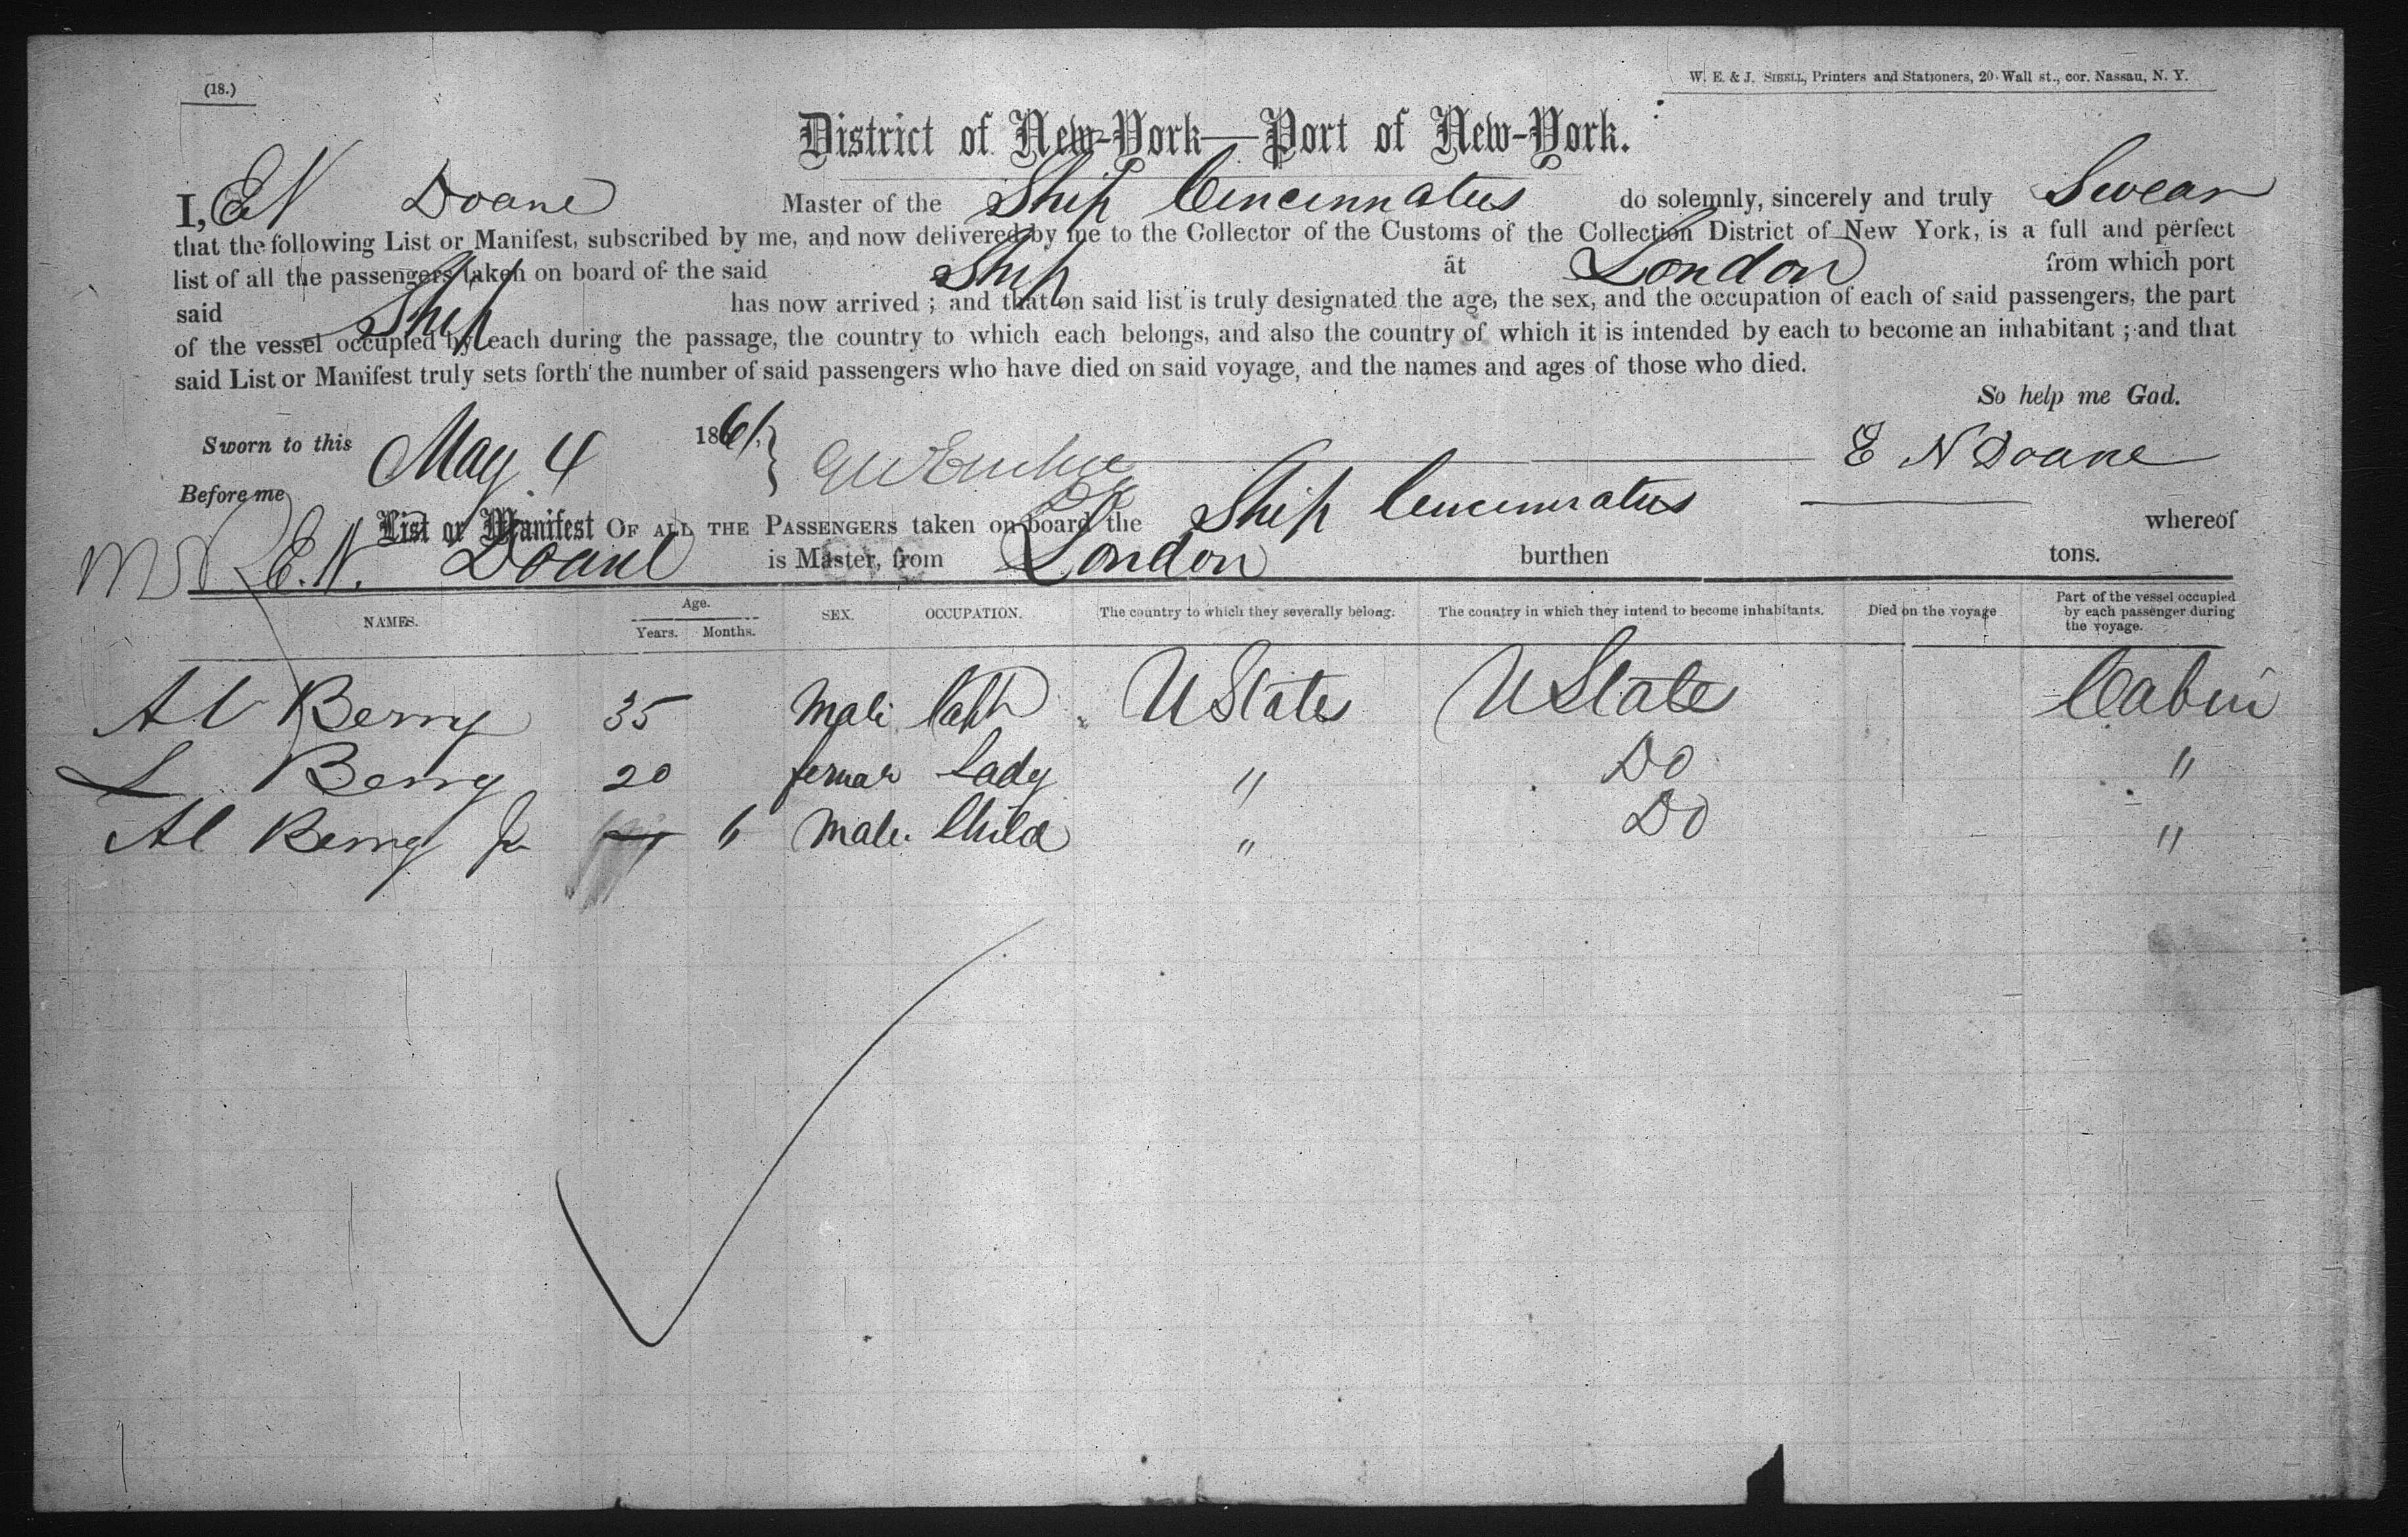 (18.)
W. E. & J. SIBELL, Printers and Stationers, 20 Wall st., cor. Nassau, N. Y.
District of New-York—Port of New-York.
I, E N Doane Master of the Ship Cincinnatus do solemnly, sincerely and truly Swear
that the following List or Manifest, subscribed by me, and now delivered by me to the Collector of the Customs of the Collection District of New York, is a full and perfect
list of all the passengers taken on board of the said Ship at London from which port
said Ship has now arrived ; and that on said list is truly designated the age, the sex, and the occupation of each of said passengers, the part
of the vessel occupied by each during the passage, the country to which each belongs, and also the country of which it is intended by each to become an inhabitant ; and that
said List or Manifest truly sets forth the number of said passengers who have died on said voyage, and the names and ages of those who died.
So help me God.
Sworn to this May 4 1861. E N Doane
Before me
List or Manifest OF ALL THE PASSENGERS taken on board the Ship Cincinnatus whereof
E. N. Doane is Master, from London burthen tons.
NAMES. Age. Years. Months. SEX. OCCUPATION. The country to which they severally belong. The country in which they intend to become inhabitants. Died on the voyage Part of the vessel occupied by each passenger during the voyage.
Al Berry 35 Male Capt U States U States Cabin
L Berry 20 female Lady " Do "
Al Berry Jr 6 Male Child " Do "